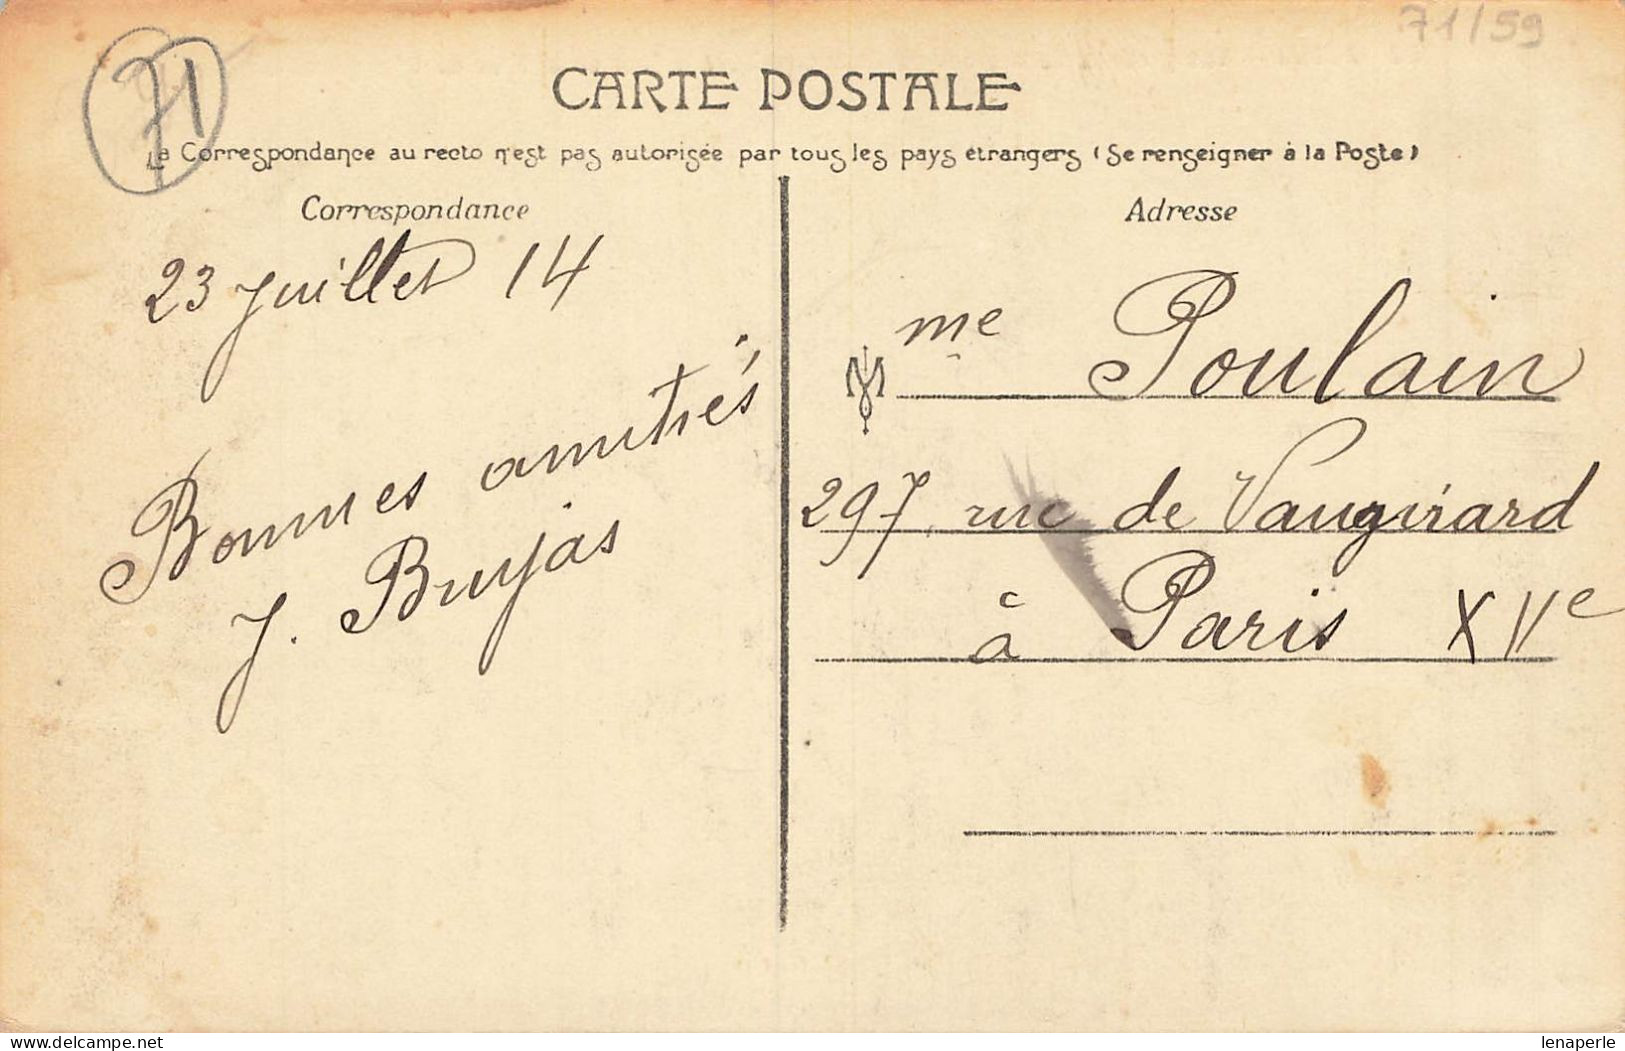 71/59
71
CARTE POSTALE
La Correspondance au recto n'est pas autorisée par tous les pays étrangers (Se renseigner à la Poste)
Correspondance
23 juillet 14
Bonnes amitiés
J. Brujas
Adresse
Mme Poulain
297, rue de Vaugirard
à Paris XVe
www.delcampe.net
lenaperle